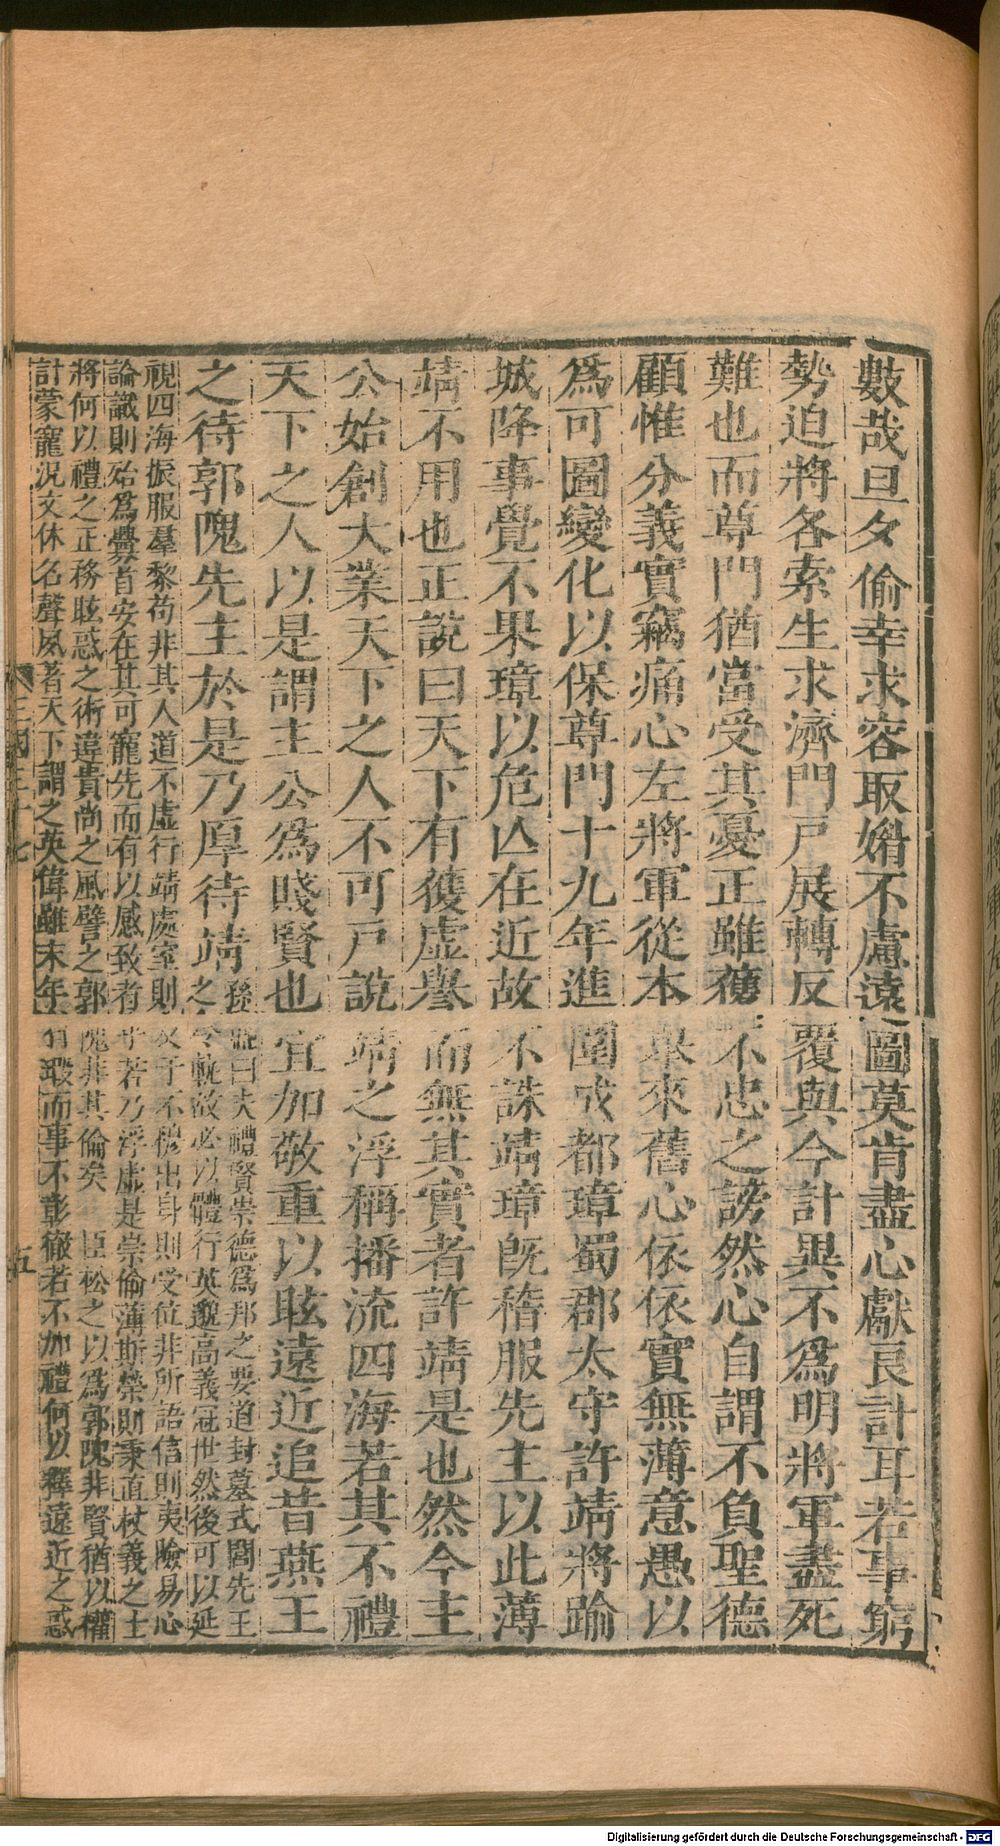 數哉旦夕偷幸求容取媚不慮遠圖莫肯盡心獻良計耳若事窮
勢迫將各索生求濟門戶展轉反覆與今計異不爲明將軍盡死
難也而尊門猶當受其憂正雖獲不忠之謗然心自謂不負聖德
顧惟分義實竊痛心左將軍從本舉來舊心依依實無薄意愚以
爲可圖變化以保尊門十九年進圍成都璋蜀郡太守許靖將踰
城降事覺不果璋以危亡在近故不誅靖璋旣稽服先主以此薄
靖不用也正說曰天下有獲虛譽而無其實者許靖是也然今主
公始創大業天下之人不可戶說靖之浮稱播流四海若其不禮
天下之人以是謂主公爲賤賢也宜加敬重以眩遠近追昔燕王
之待郭隗先主於是乃厚待靖
孫盛曰夫禮賢崇德爲邦之要道封墓式閭先王
之令軌故必以體行英邈高義冠世然後可以延
視四海振服羣黎苟非其人道不虛行靖處室則友于不穆出身則受位非所語信則夷險易心
論識則殆爲釁首安在其可寵先而有以感致者乎若乃浮虛是崇偷薄斯榮則秉直杖義之士
將何以禮之正務眩惑之術違貴尚之風譬之郭隗非其倫矣 臣松之以爲郭隗非賢猶以權
計蒙寵況文休名聲夙著天下謂之英偉雖末年有瑕而事不彰徹若不加禮何以釋遠近之惑
三國三十七 五
Digitalisierung gefördert durch die Deutsche Forschungsgemeinschaft - DFG